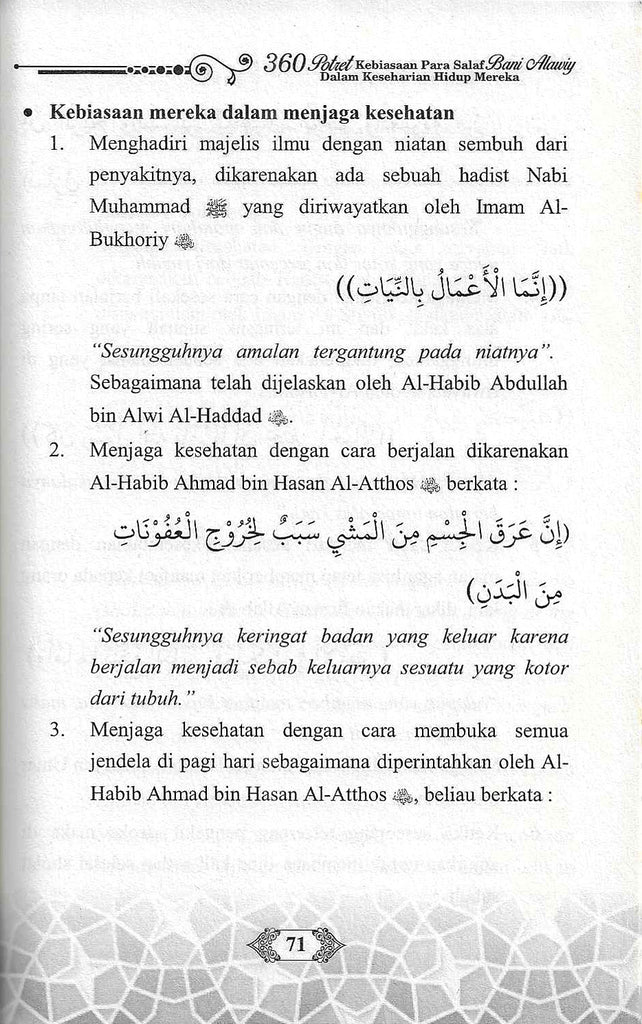 360 Potret Kebiasaan Para Salaf Bani Alawiy
Dalam Keseharian Hidup Mereka
• Kebiasaan mereka dalam menjaga kesehatan
1. Menghadiri majelis ilmu dengan niatan sembuh dari
penyakitnya, dikarenakan ada sebuah hadist Nabi
Muhammad ﷺ yang diriwayatkan oleh Imam Al-
Bukhoriy
((إِنَّمَا الْأَعْمَالُ بِالنِّيَاتِ))
“Sesungguhnya amalan tergantung pada niatnya”.
Sebagaimana telah dijelaskan oleh Al-Habib Abdullah
bin Alwi Al-Haddad.
2. Menjaga kesehatan dengan cara berjalan dikarenakan
Al-Habib Ahmad bin Hasan Al-Atthos berkata :
(إِنَّ عَرَقَ الْجِسْمِ مِنَ الْمَشْيِ سَبَبٌ لِخُرُوْجِ الْعُفُوْنَاتِ
مِنَ الْبَدَنِ)
“Sesungguhnya keringat badan yang keluar karena
berjalan menjadi sebab keluarnya sesuatu yang kotor
dari tubuh.”
3. Menjaga kesehatan dengan cara membuka semua
jendela di pagi hari sebagaimana diperintahkan oleh Al-
Habib Ahmad bin Hasan Al-Atthos, beliau berkata :
71